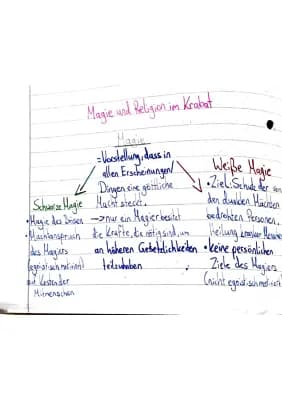 Magie und Religion im Krabat
Magie
= Vorstellung, dass in
allen Erscheinungen/
Dingen eine göttliche
Macht steckt.
→ nur ein Magier besitzt
die Kräfte, die nötig sind, um
an höheren
teilzuhaben
Schwarze Magie
• Magie des Bösen
• Machtanspruch
des Magiers
(egoistisch motiviert)
auf Kosten der
Mitmenschen
Weiße Magie
• Ziel: Schutz der von
den dunklen Mächten
bedrohten Personen,
Heilung kranker Menschen
• keine persönlichen
Ziele des Magiers
(nicht egoistisch motiviert)